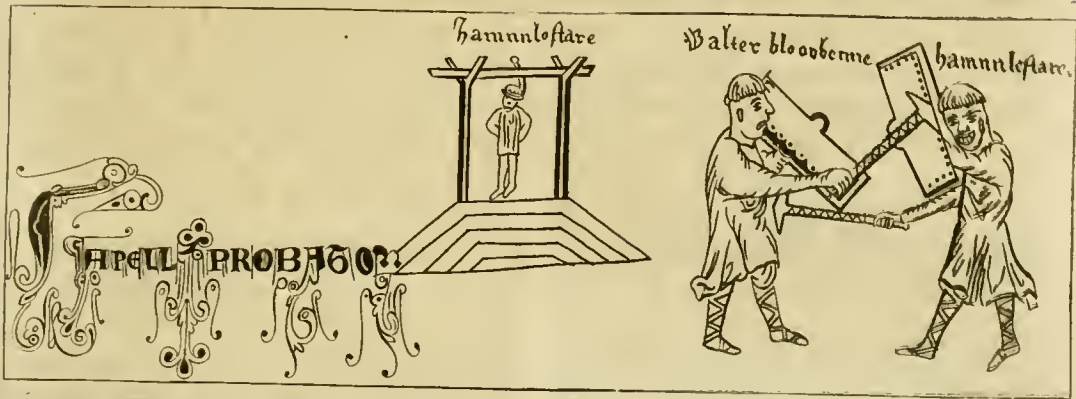 hamun le stare
Walter blowberme hamun le stare.
APELL PROBATO